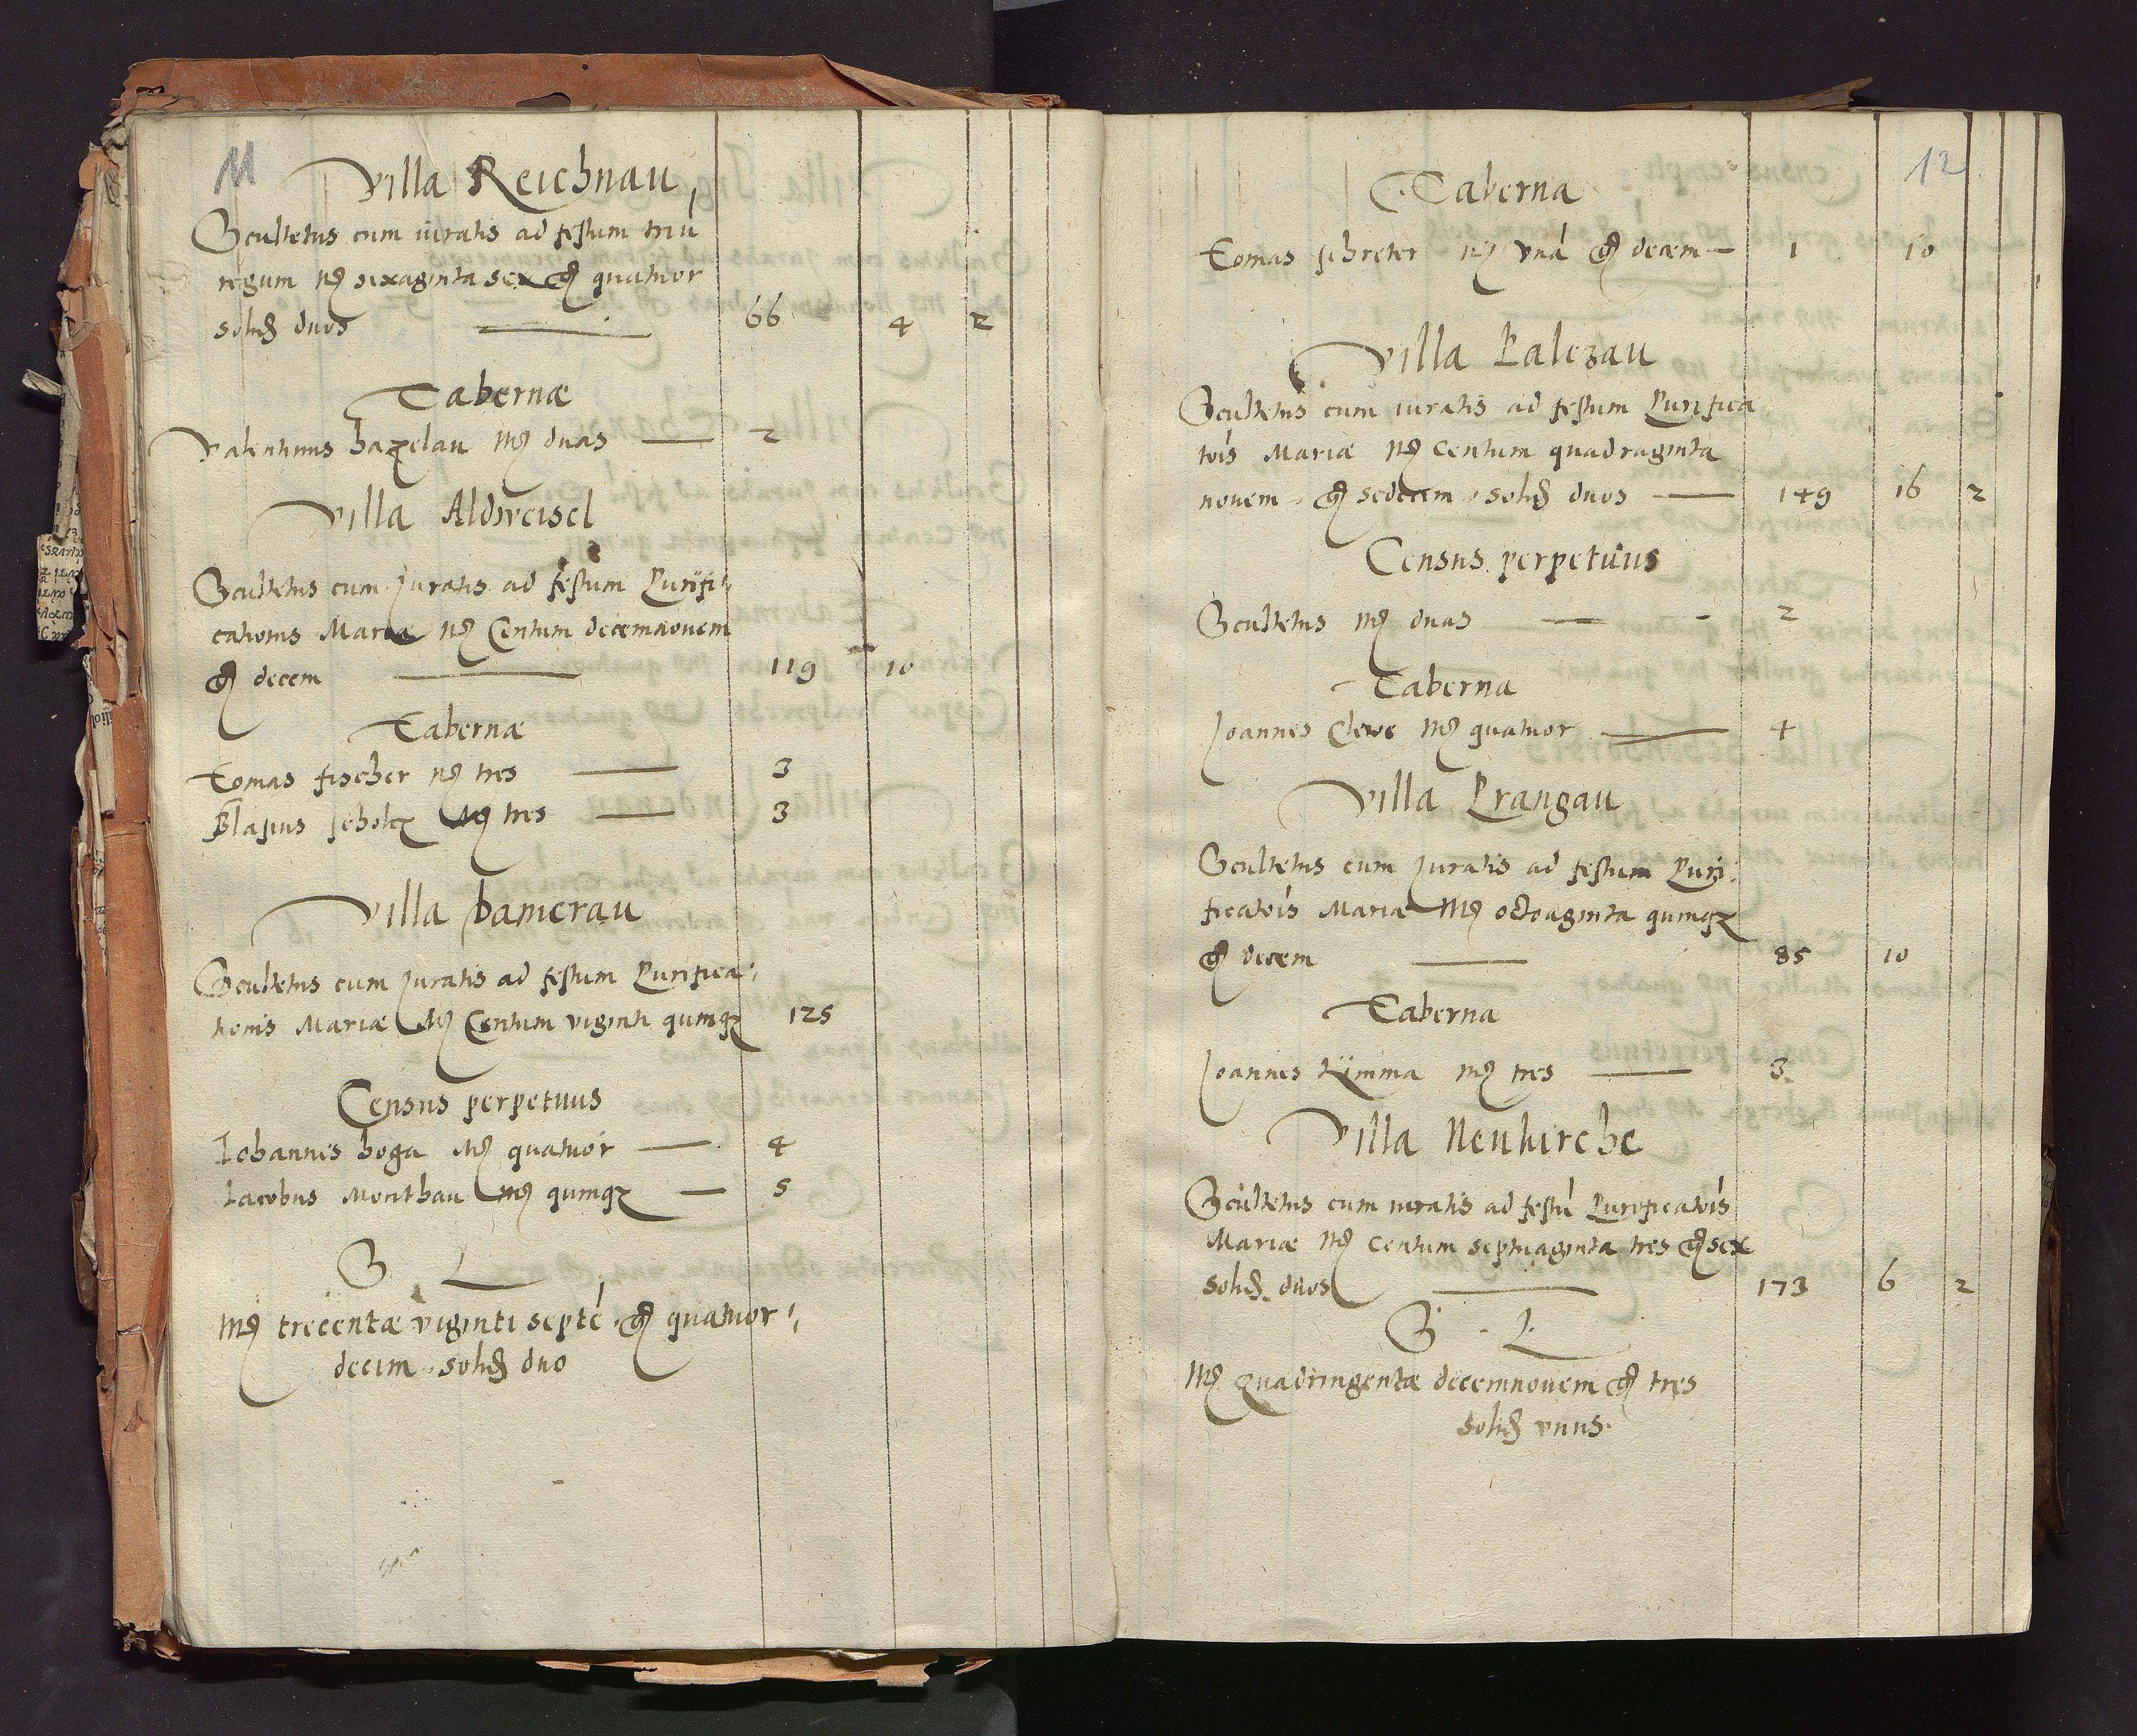 11
Villa Reichnau
Scultetus cum iuratis ad festum triū
regum mꝶ sexaginta sex gꝶ quatuor
solid duos — 66 4 2
Tabernæ
Valentinus hazelau mꝶ duas — 2
Villa Aldweisel
Scultetus cum Juratis ad festum Purifi-
cationis Mariæ mꝶ Centum decemnouem
gꝶ decem — 119 10
Tabernæ
Tomas fischer mꝶ tres — 3
Blasius scholcz mꝶ tres — 3
Villa Damerau
Scultetus cum Juratis ad festum Purifica-
tionis Mariæ mꝶ Centum viginti quinqz 125
Census perpetuus
Iohannes hoga mꝶ quatuor — 4
Iacobus Monthau mꝶ quinqz — 5
S L
mꝶ trecentæ viginti septē gꝶ quatuor
decim solid duo
12
Taberna
Tomas schreter mꝶ vnā gꝶ decem — 1 10
Villa Palczau
Scultetus cum iuratis ad festum Purifica
tōis Mariæ mꝶ Centum quadraginta
novem gꝶ sedecem solid duos — 149 16 2
Census perpetuus
Scultetus mꝶ duas — 2
Taberna
Joannes Clewe mꝶ quatuor — 4
Villa Prangau
Scultetus cum Juratis ad festum Puri-
ficatōis Mariæ mꝶ octoaginta quinqz
gꝶ decem — 85 10
Taberna
Joannes mꝶ tres — 3
Villa Neukirche
Scultetus cum iuratis ad festū Purificatōis
Mariæ mꝶ Centum septuaginta tres gꝶ sex
solid duos — 173 6 2
S L
mꝶ quadringentæ decemnouem gꝶ tres
solid vnus